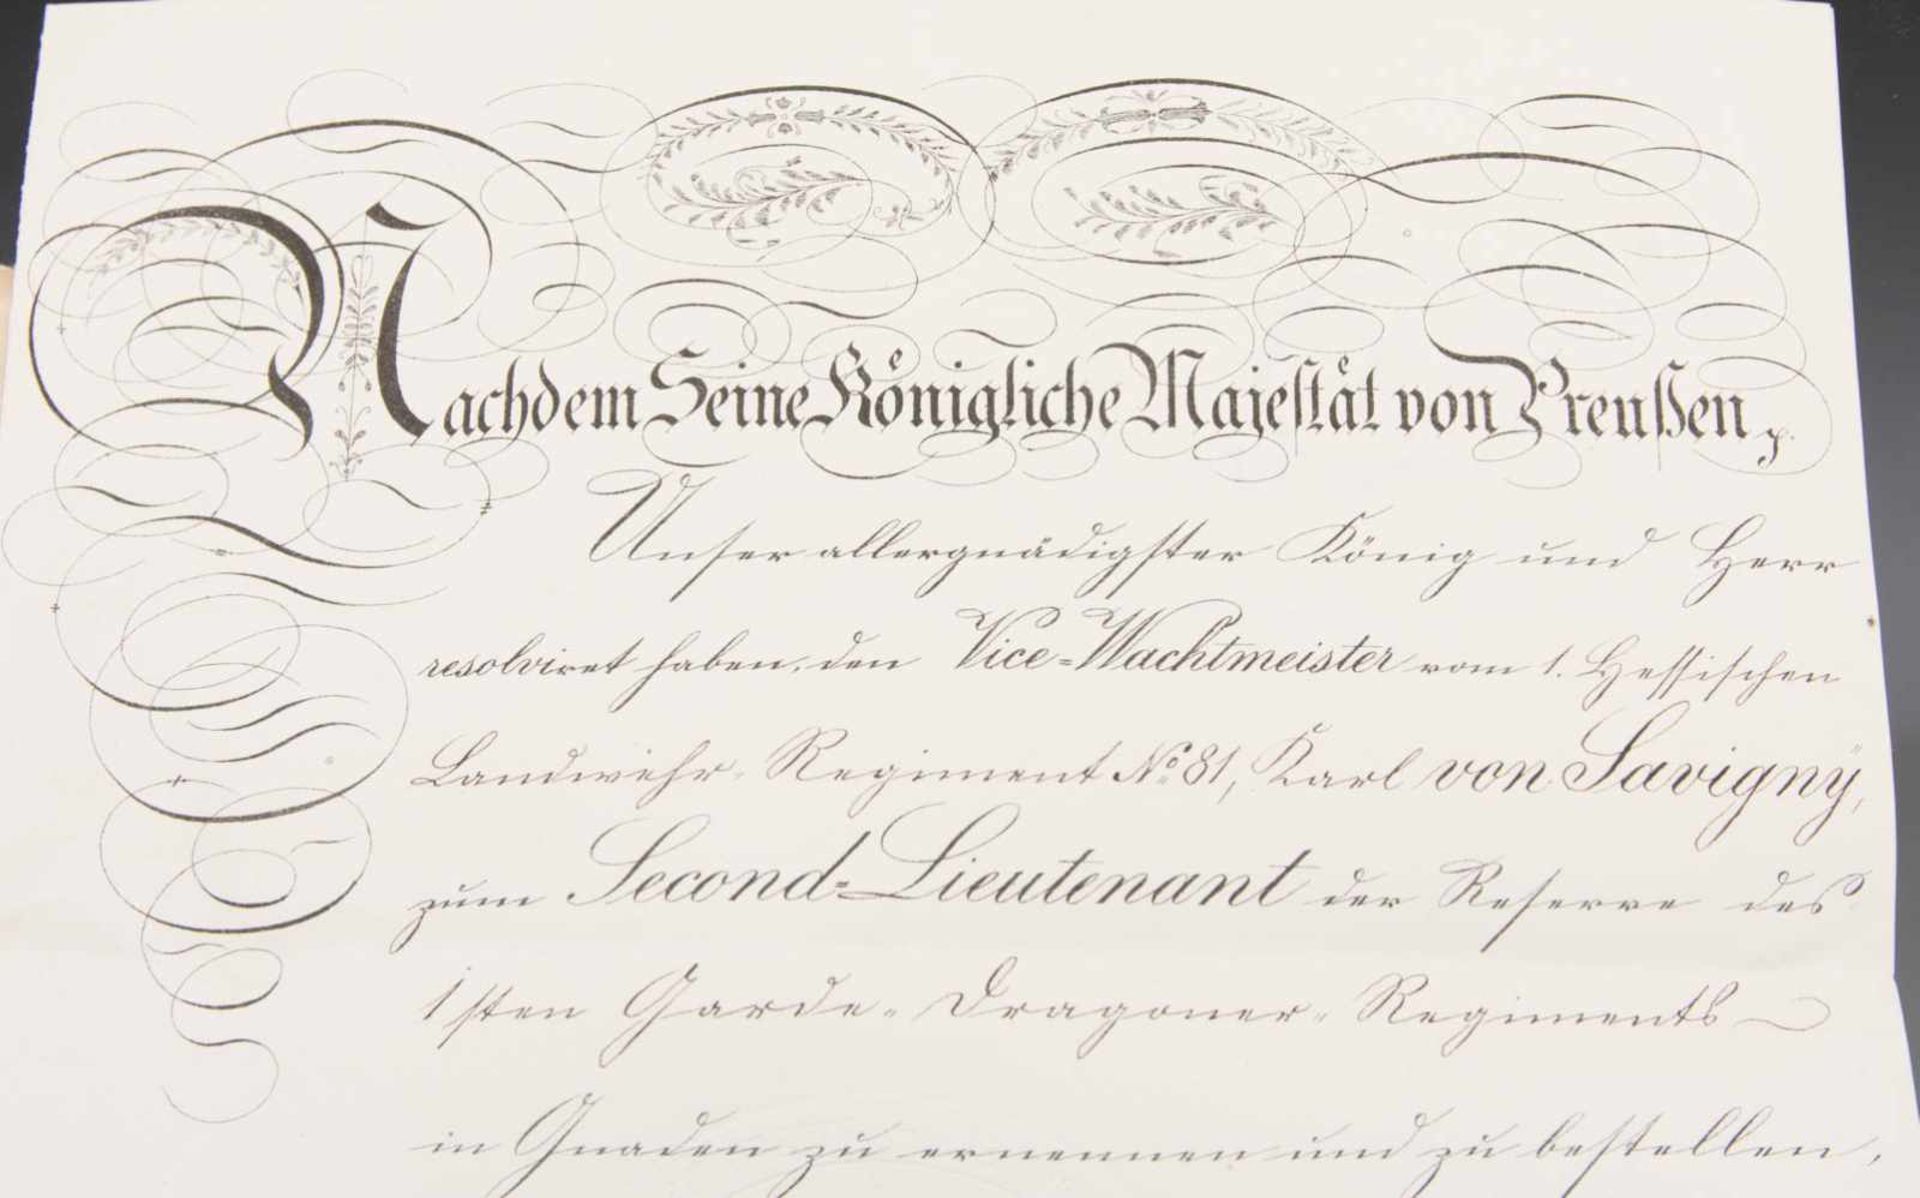 Nachdem Seine Königliche Majestät von Preußen p.
Unser allergnädigster König und Herr
resolviret haben, den Vice-Wachtmeister vom 1. Hessischen
Landwehr-Regiment No. 81, Karl von Savigny,
zum Second-Lieutenant der Reserve des
1sten Garde-Dragoner-Regiments
in Gnaden zu ernennen und zu bestellen,